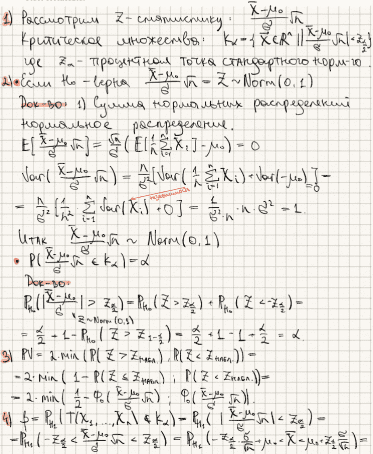 1) Рассмотрим Z-статистику: (X̄-μ₀)/σ √n
Критическое множество: K_α = { X⃗ ∈ ℝⁿ | |(X̄-μ₀)/σ √n| < z_{α/2} }
где z_α - процентная точка стандартного норм-го.
2) • Если H₀ - верна (X̄-μ₀)/σ √n = Z ~ Norm(0,1)
Док-во: 1) Сумма нормальных распределений
нормальное распределение.
E[(X̄-μ₀)/σ √n] = √n/σ (E[1/n Σᵢ₌₁ⁿ Xᵢ] - μ₀) = 0
Var((X̄-μ₀)/σ √n) = n/σ² [Var(1/n Σᵢ₌₁ⁿ Xᵢ) + Var(-μ₀)] =
=0
= n/σ² [1/n² Σᵢ₌₁ⁿ Var(Xᵢ) + 0] = 1/σ² · n · 1/n · σ² = 1.
Итак (X̄-μ₀)/σ √n ~ Norm(0,1)
• P((X̄-μ₀)/σ √n ∈ K_α) = α
Док-во:
P_{H₀}(|(X̄-μ₀)/σ √n| > z_{α/2}) = P_{H₀}(Z > z_{α/2}) + P_{H₀}(Z < -z_{α/2}) =
Z ~ Norm(0,1)
= α/2 + 1 - P_{H₀}(Z > z_{1-α/2}) = α/2 + 1 - 1 + α/2 = α.
3) PV = 2·min(P(Z > Z_{набл.}), P(Z < Z_{набл.})) =
= 2·min(1 - P(Z ≤ Z_{набл.}); P(Z < Z_{набл.})) =
= 2·min(1/2 - Φ₀((X̄-μ₀)/σ √n); Φ₀((X̄-μ₀)/σ √n)).
4) β = P_{H₁}(T(X₁, ..., Xₙ) ∉ K_α) = P_{H₁}(|(X̄-μ₀)/σ √n| < z_{α/2}) =
= P_{H₁}(-z_{α/2} < (X̄-μ₀)/σ √n < z_{α/2}) = P_{H₁}(-z_{α/2} σ/√n + μ₀ < X̄ < μ₀ + z_{α/2} σ/√n) =